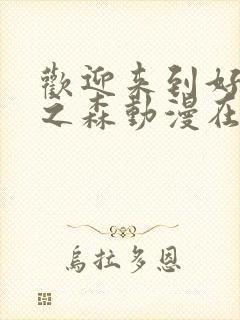 歡迎来到好
之森動漫在
烏拉多恩